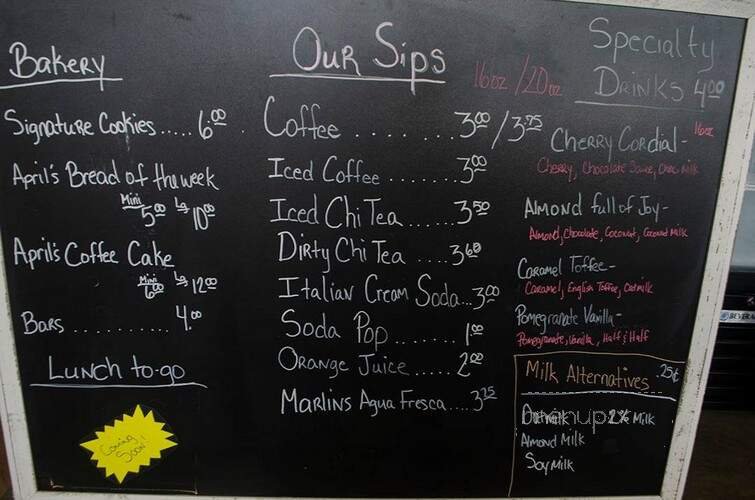 Bakery
Signature Cookies..... 6.00
April's Bread of the week
Mini 5.00 Lg 10.00
April's Coffee Cake
Mini 6.00 Lg 12.00
Bars .......... 4.00
Lunch to-go
Coming Soon!
Our Sips
16oz / 20oz
Coffee ........ 3.00 / 3.75
Iced Coffee ....... 3.00
Iced Chi Tea ..... 3.50
Dirty Chi Tea .... 3.60
Italian Cream Soda... 3.00
Soda Pop ........ 1.00
Orange Juice ..... 2.00
Marlins Agua Fresca.... 3.25
Specialty
Drinks 4.00
16oz
Cherry Cordial -
Cherry, Chocolate Sauce, Choc Milk
Almond full of Joy -
Almond, Chocolate, Coconut, Coconut Milk
Caramel Toffee -
Caramel, English Toffee, Oatmilk
Pomegranate Vanilla -
Pomegranate, Vanilla, Half & Half
Milk Alternatives .25¢
2% Milk
Almond Milk
Soy Milk